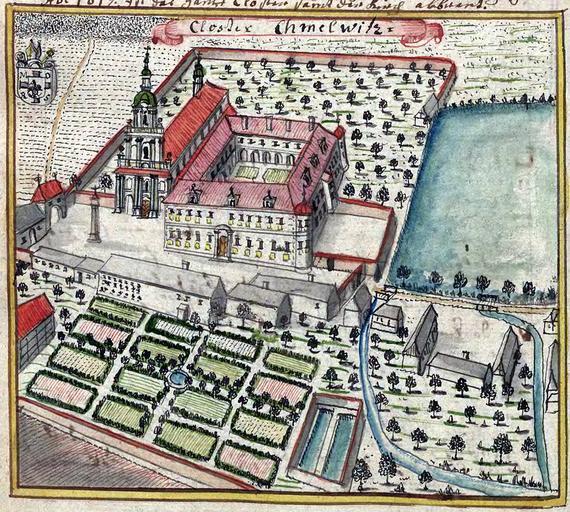 1817. ist das gantze Closter samt der Kirch abbrant.
Closter Chmelwitz